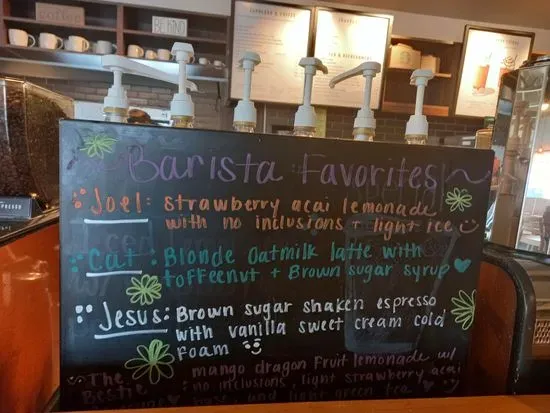 coffee
BE KIND
~Barista Favorites~
Joel: strawberry acai lemonade
with no inclusions + light ice
Cat: Blonde Oatmilk latte with
toffeenut + Brown sugar syrup
Jesus: Brown sugar shaken espresso
with vanilla sweet cream cold
foam
The mango dragon fruit lemonade w/
Besti : no inclusions, light strawberry acai
base and light green tea
ESPRESSO